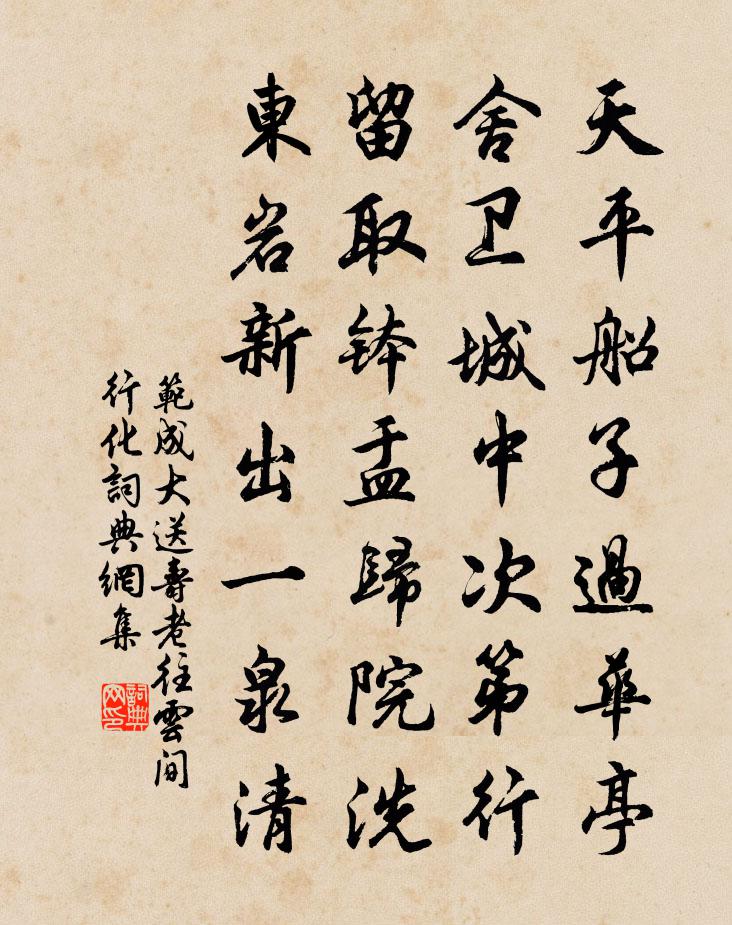 天平船子過華亭
舍卫城中次第行
留取鉢盂歸院洗
東岩新出一泉清
範成大送壽老往雲间
行化詞典網集
詞典
网印